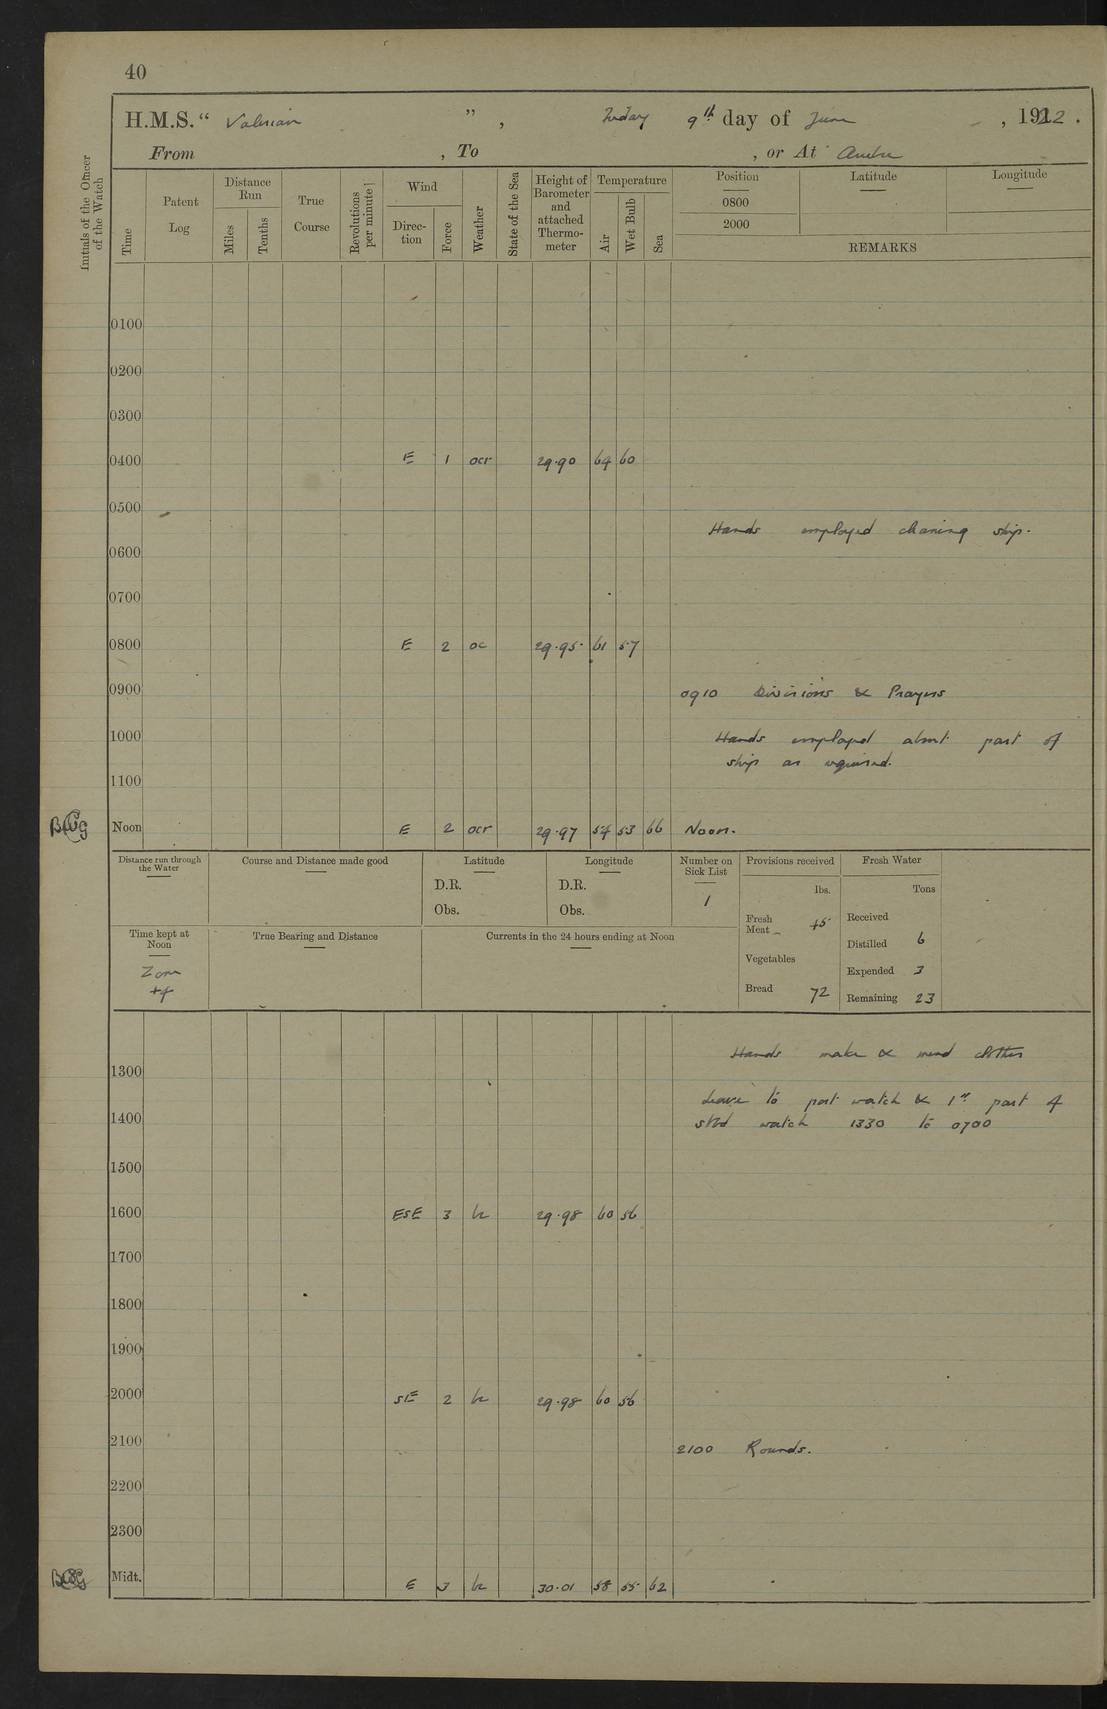 40
H.M.S. " Valerian " , 9th day of June , 1922 .
From , To , or At
Initials of the Officer of the Watch
Time
Patent Log
Distance Run
Miles
Tenths
True Course
Revolutions per minute
Wind
Direction
Force
Weather
State of the Sea
Height of Barometer and attached Thermometer
Temperature
Air
Wet Bulb
Sea
Position Latitude Longitude
0800
2000
REMARKS
0100
0200
0300
0400 E 1 ocr 29.90 64 60
0500
Hands employed cleaning ship.
0600
0700
0800 E 2 oc 29.95 61 57
0900 0910 Divisions & Prayers
1000 Hands employed about part of
ship as required.
1100
Noon E 2 ocr 29.97 54 53 66 Noon.
Distance run through the Water
Course and Distance made good
Latitude
D.R.
Obs.
Longitude
D.R.
Obs.
Number on Sick List
1
Provisions received
lbs.
Fresh Meat 45
Vegetables
Bread 72
Fresh Water
Tons
Received
Distilled 6
Expended 3
Remaining 23
Time kept at Noon
Zone
+4
True Bearing and Distance
Currents in the 24 hours ending at Noon
Hands make & mend clothes
1300
Leave to port watch & 1st part of
1400 stbd watch 1330 to 0700
1500
1600 ESE 3 bc 29.98 60 56
1700
1800
1900
2000 SE 2 bc 29.98 60 56
2100 2100 Rounds.
2200
2300
Midt. E 3 bc 30.01 58 55 62